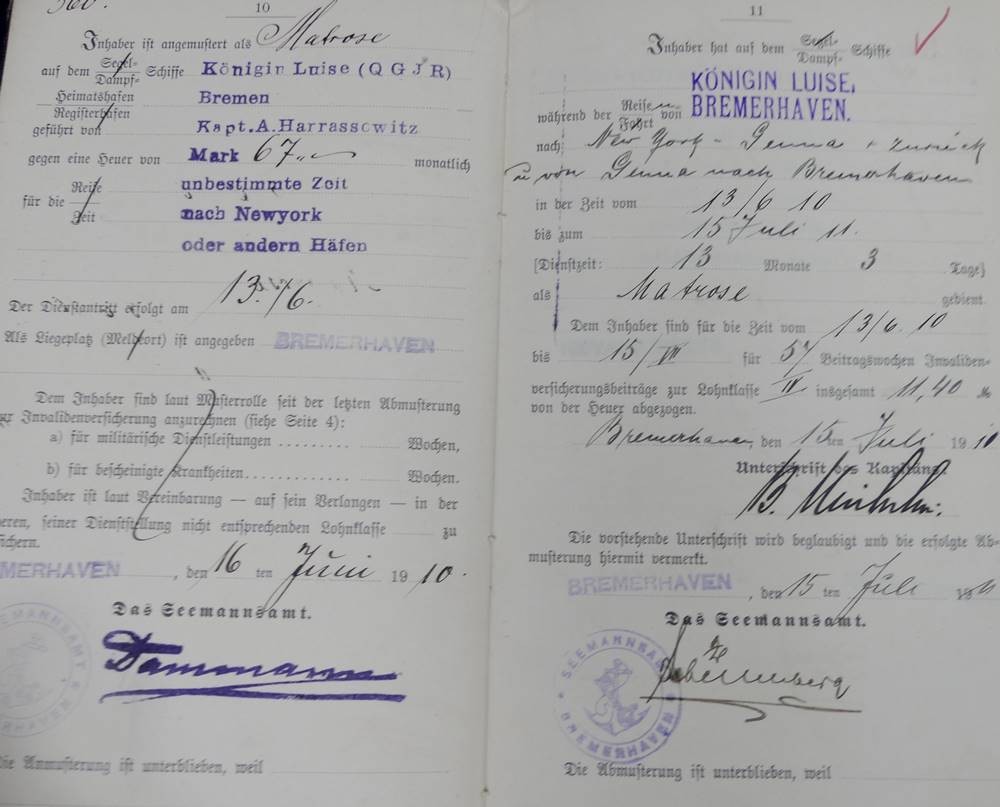 10
Inhaber ist angemustert als Matrose
auf dem Segel- Dampf- Schiffe Königin Luise (Q G J R)
Heimatshafen Bremen
Registerhafen
geführt von Kapt. A. Harrassowitz
gegen eine Heuer von Mark 67.- monatlich
für die Reise Zeit unbestimmte Zeit
nach Newyork
oder andern Häfen
Der Dienstantritt erfolgt am 13./6.
Als Liegeplatz (Meldeort) ist angegeben BREMERHAVEN
Dem Inhaber sind laut Musterrolle seit der letzten Abmusterung
zur Invalidenversicherung anzurechnen (siehe Seite 4):
a) für militärische Dienstleistungen .......... Wochen,
b) für bescheinigte Krankheiten .............. Wochen.
Inhaber ist laut Vereinbarung — auf sein Verlangen — in der
seiner Dienststellung nicht entsprechenden Lohnklasse zu
BREMERHAVEN, den 16 ten Juni 1910.
Das Seemannsamt.
Dammann
SEEMANNSAMT
Die Anmusterung ist unterblieben, weil
11
Inhaber hat auf dem Segel- Dampf- Schiffe
KÖNIGIN LUISE,
BREMERHAVEN.
während der Reisen Fahrt von
nach New York - Genua + zurück
u von Genua nach Bremerhaven
in der Zeit vom 13/6 10
bis zum 15 Juli 11.
[Dienstzeit: 13 Monate 3 Tage]
als Matrose gedient.
Dem Inhaber sind für die Zeit vom 13/6. 10
bis 15/VII für 57 Beitragswochen Invaliden-
versicherungsbeiträge zur Lohnklasse IV insgesamt 11,40 M
von der Heuer abgezogen.
Bremerhaven, den 15ten Juli 191
Unterschrift des Kapitäns
B.
Die vorstehende Unterschrift wird beglaubigt und die erfolgte Ab-
musterung hiermit vermerkt.
BREMERHAVEN, den 15 ten Juli
Das Seemannsamt.
SEEMANNSAMT BREMERHAVEN
Die Abmusterung ist unterblieben, weil